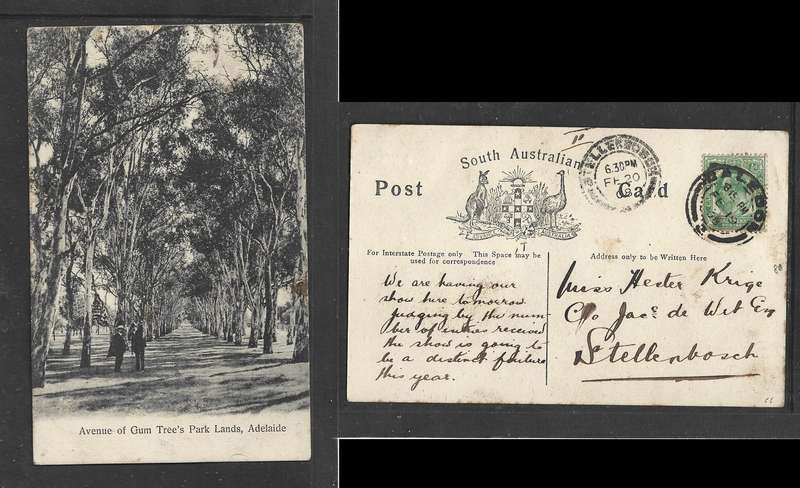 Avenue of Gum Tree's Park Lands, Adelaide
South Australian
Post Card
STELLENBOSCH
6.30PM
FE 20
CALEDON
For Interstate Postage only This Space may be
used for correspondence
Address only to be Written Here
We are having our
show here tomorrow
judging by the num-
ber of entries received
the show is going to
be a distinct failure
this year.
Miss Hester Krige
C/o Jacs. de Wet
Stellenbosch